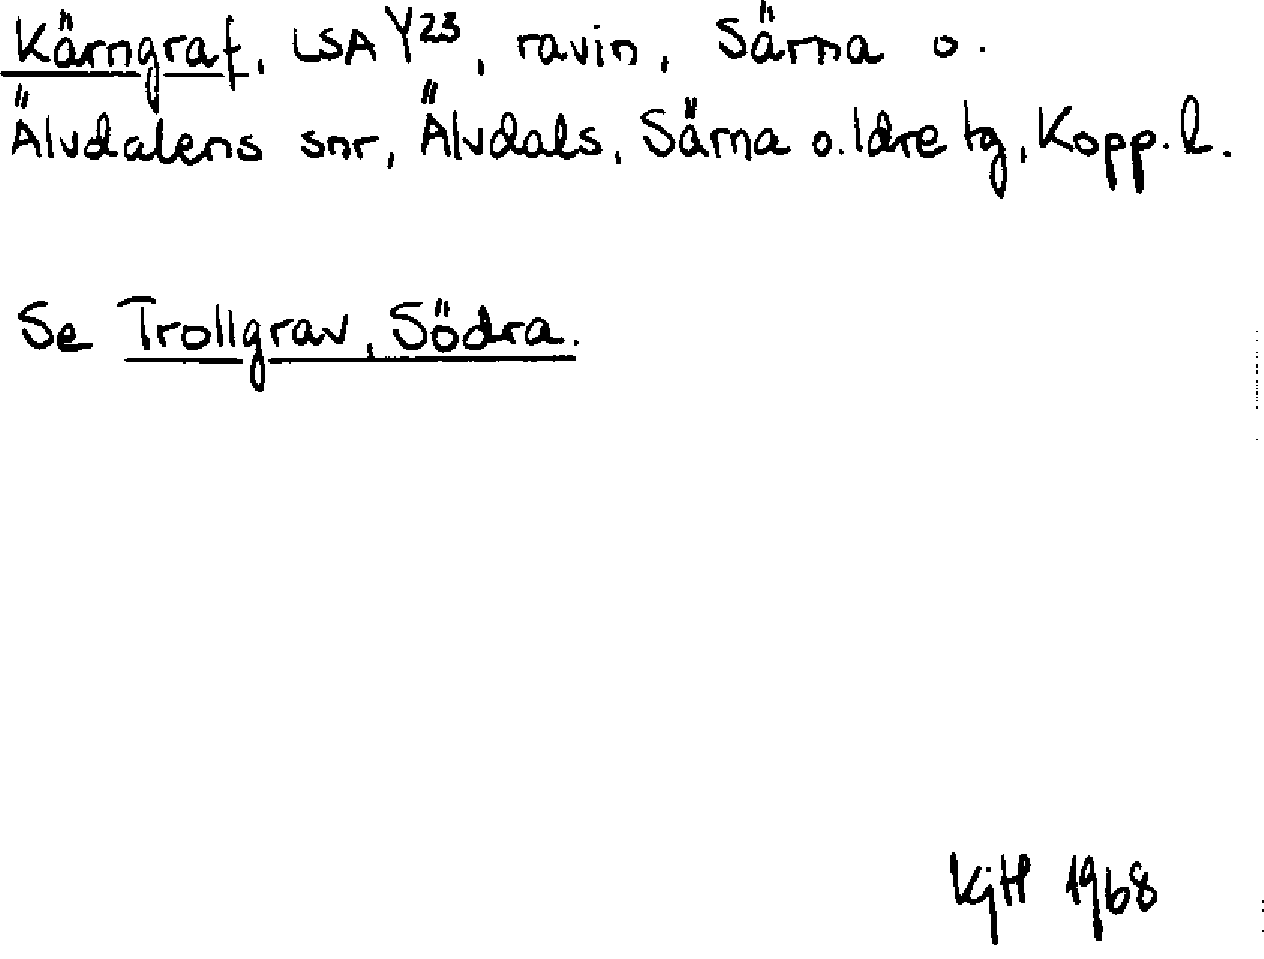 Kärngraf, LSA Y23, ravin, Särna o.
Älvdalens snr, Älvdals, Särna o. Idre tg, Kopp. l.
Se Trollgrav, Södra.
KjH 1968